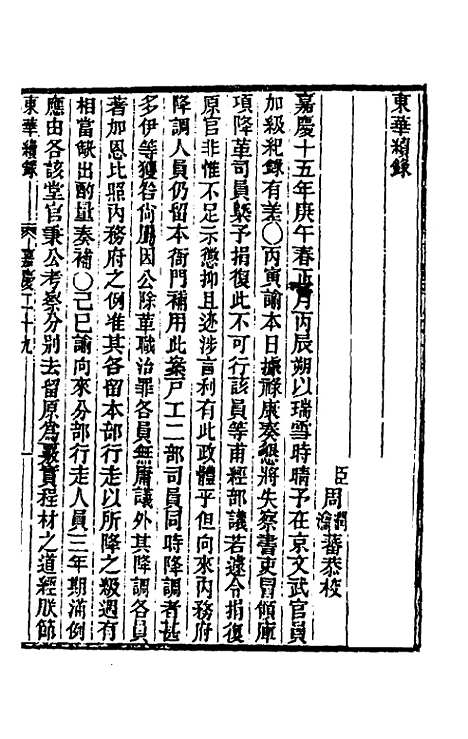 東華續錄
臣周潤蕃瀹蕃恭校
嘉慶十五年庚午春正月丙辰朔以瑞雪時晴予在京文武官員
加級紀錄有差〇丙寅諭本日據祿康奏懇將失察書吏冒領庫
項降革司員槩予捐復此不可行該員等甫經部議若遽令捐復
原官非惟不足示懲抑且迹涉言利有此政體乎但向來內務府
降調人員仍留本衙門補用此案戸工二部司員同時降調者甚
多伊等獲咎尙屬因公除革職治罪各員無庸議外其降調各員
著加恩比照內務府之例准其各留本部行走以所降之級遇有
相當缺出酌量奏補〇己巳諭向來分部行走人員三年期滿例
應由各該堂官秉公考察分別去留原爲覈實程材之道經朕節
東華續錄 嘉慶二十九 一